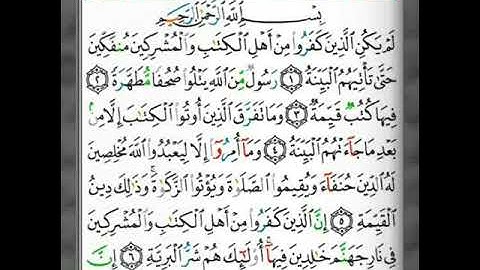 بِسْمِ اللَّهِ الرَّحْمَٰنِ الرَّحِيمِ
لَمْ يَكُنِ الَّذِينَ كَفَرُوا مِنْ أَهْلِ الْكِتَٰبِ وَالْمُشْرِكِينَ مُنفَكِّينَ
حَتَّىٰ تَأْتِيَهُمُ الْبَيِّنَةُ ١ رَسُولٌ مِّنَ اللَّهِ يَتْلُوا صُحُفًا مُّطَهَّرَةً ٢
فِيهَا كُتُبٌ قَيِّمَةٌ ٣ وَمَا تَفَرَّقَ الَّذِينَ أُوتُوا الْكِتَٰبَ إِلَّا مِنۢ
بَعْدِ مَا جَاءَتْهُمُ الْبَيِّنَةُ ٤ وَمَا أُمِرُوا إِلَّا لِيَعْبُدُوا اللَّهَ مُخْلِصِينَ
لَهُ الدِّينَ حُنَفَاءَ وَيُقِيمُوا الصَّلَوٰةَ وَيُؤْتُوا الزَّكَوٰةَ وَذَٰلِكَ دِينُ
الْقَيِّمَةِ ٥ إِنَّ الَّذِينَ كَفَرُوا مِنْ أَهْلِ الْكِتَٰبِ وَالْمُشْرِكِينَ
فِي نَارِ جَهَنَّمَ خَٰلِدِينَ فِيهَا أُولَٰئِكَ هُمْ شَرُّ الْبَرِيَّةِ ٦ إِنَّ